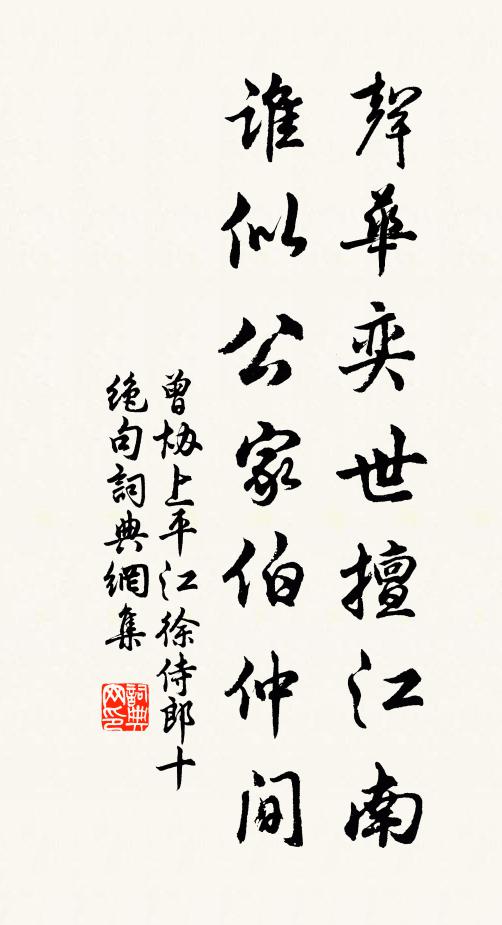 聲華奕世擅江南
誰似公家伯仲間
曾協上平江徐侍郎十
絶句詞典網集
詞典网印